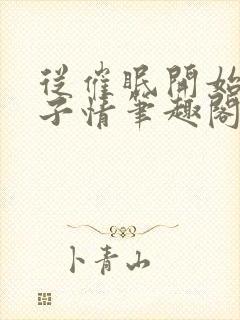 從催眠開始
子情筆趣閣
卜青山